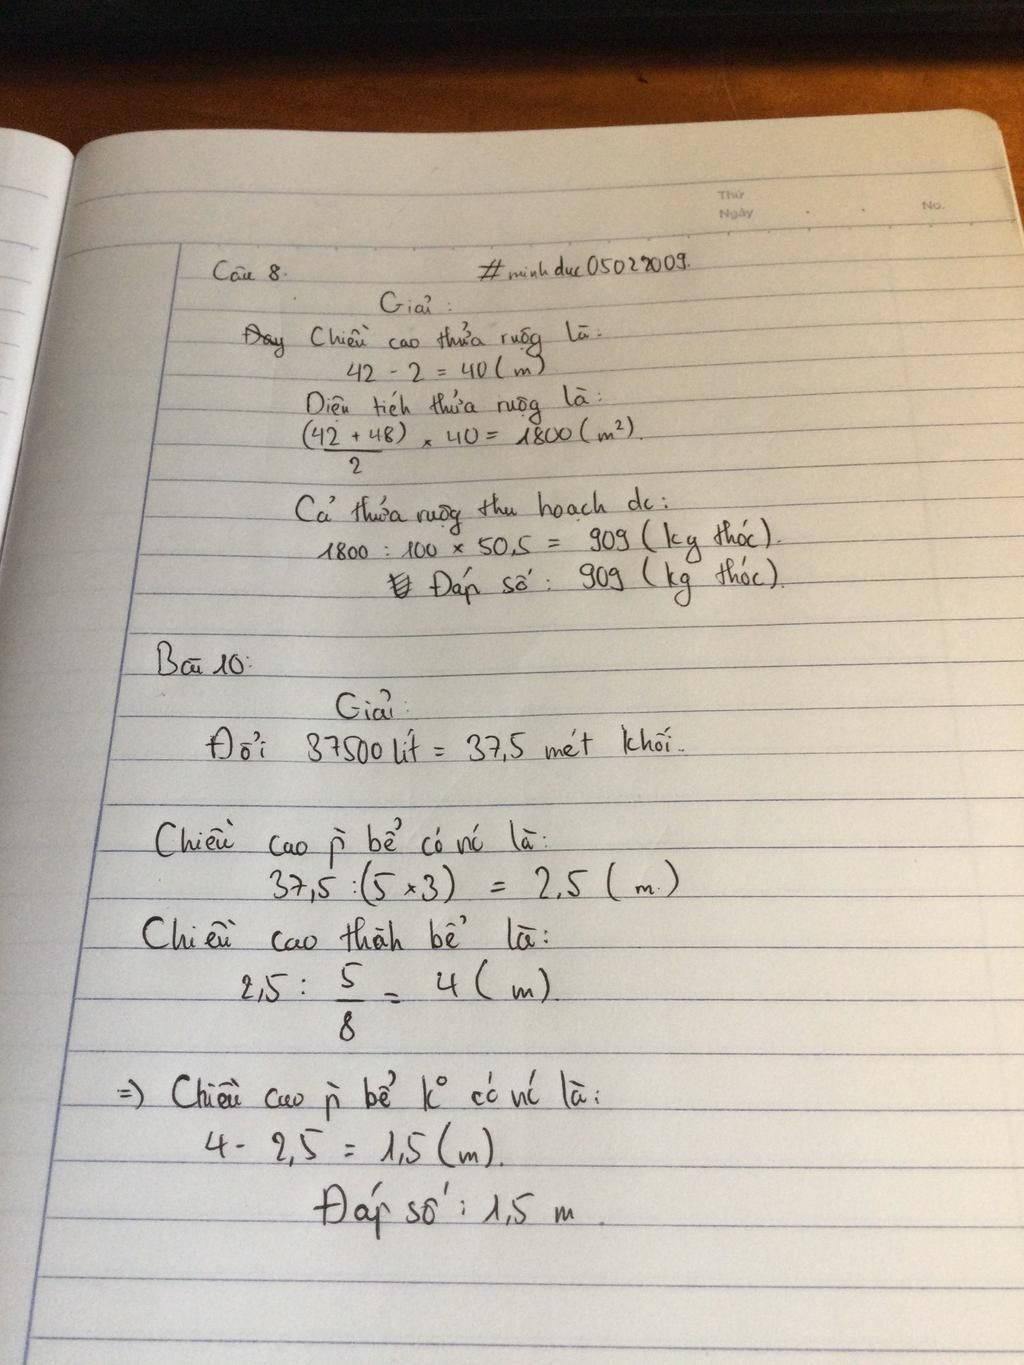 Thứ
Ngày . . No.
Câu 8. #minhduc05022009.
Giải:
Đay Chiều cao thửa ruộg là:
42 - 2 = 40 (m)
Diện tích thửa ruộg là:
(42 + 48) × 40 = 1800 (m²).
2
Cả thửa ruộg thu hoạch dc:
1800 : 100 × 50,5 = 909 (kg thóc).
Đáp số: 909 (kg thóc).
Bài 10:
Giải:
Đổi 37500 lít = 37,5 mét khối.
Chiều cao p̀ bể có nć là:
37,5 : (5 × 3) = 2,5 (m)
Chiều cao thàh bể là:
2,5 : 5 = 4 (m).
8
=) Chiều cao p̀ bể k° có nć là:
4 - 2,5 = 1,5 (m).
Đáp số: 1,5 m.